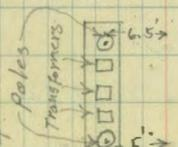 Poles
Transformers
6.5'
5'